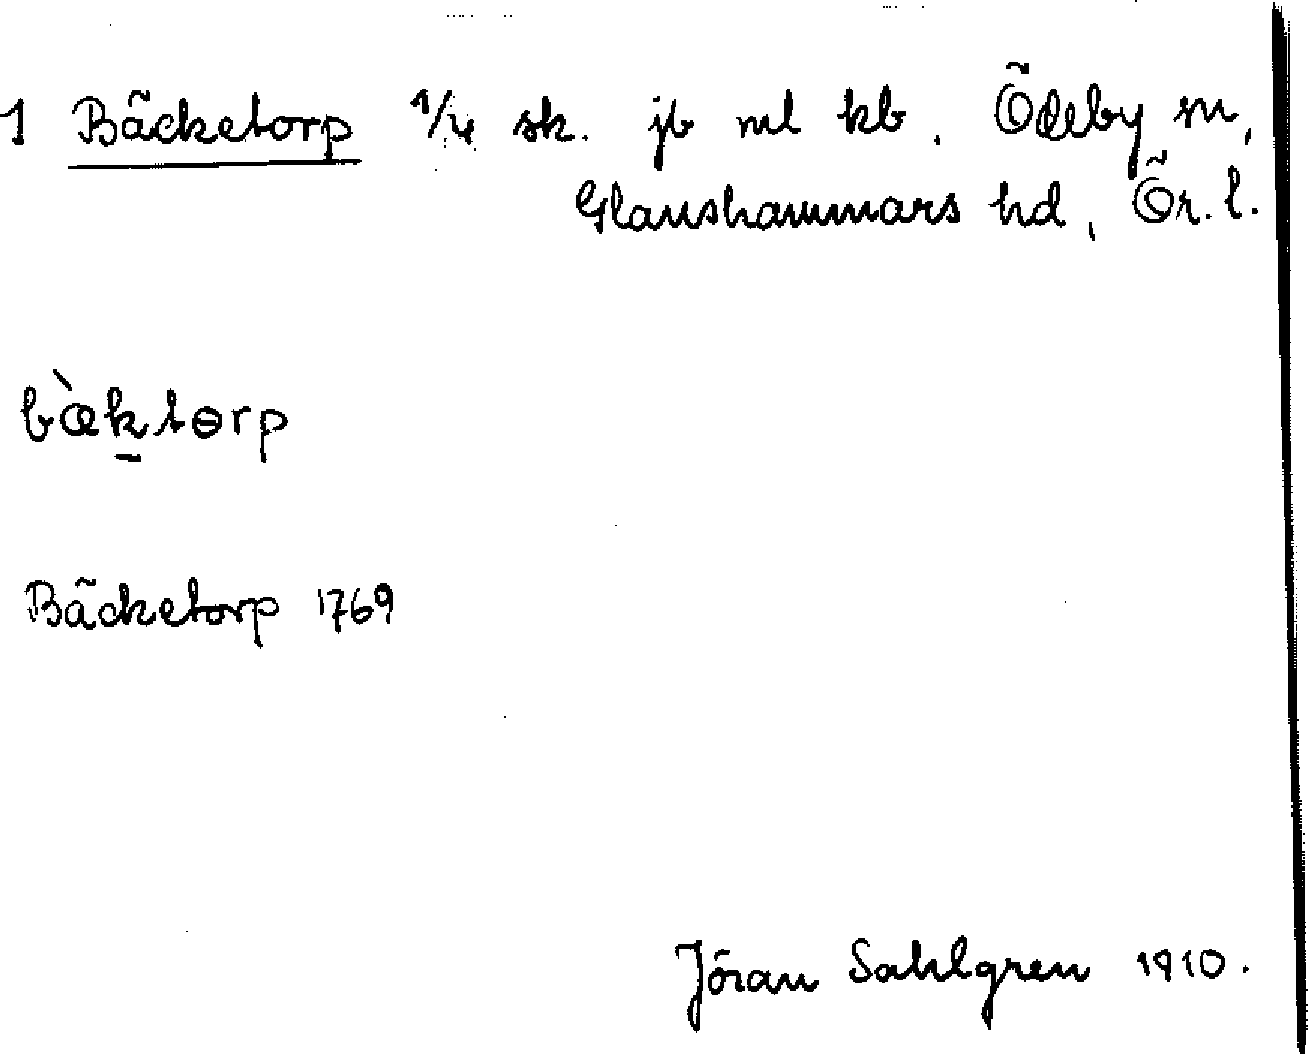 1 Bäcketorp 1/4 sk. jb ml kb. Ödeby sn,
Glanshammars hd, Ör. l.
bæ̀ktɵrp
Bäcketorp 1769
Jöran Sahlgren 1910.